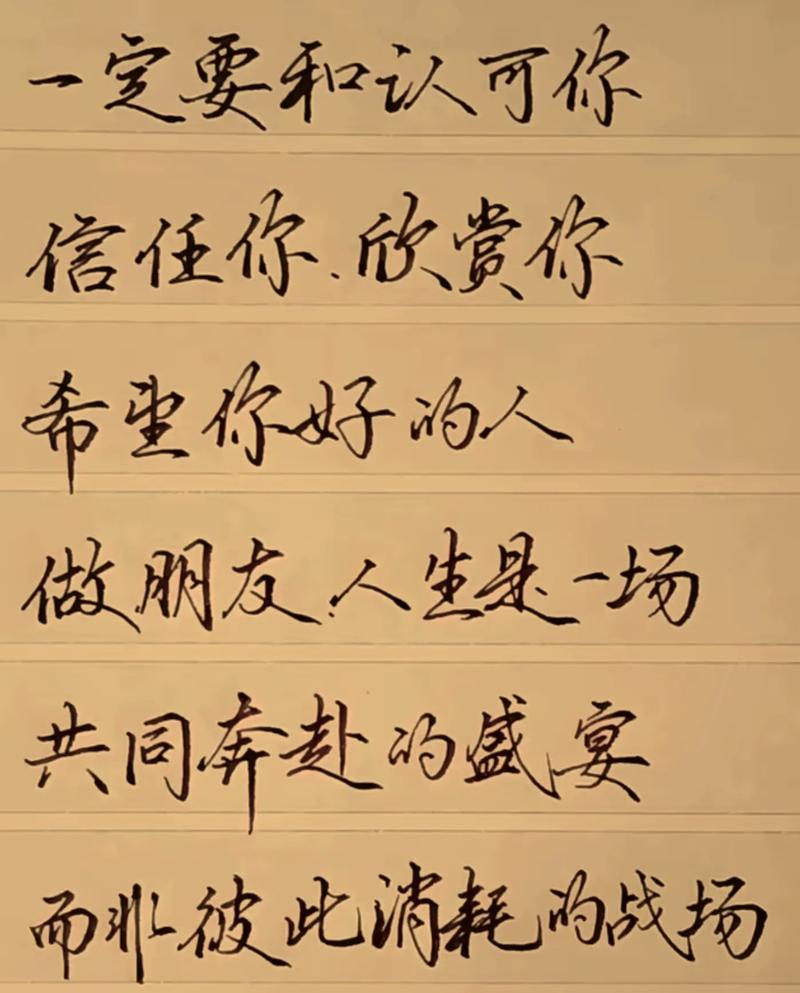 一定要和认可你
信任你.欣赏你
希望你好的人
做朋友.人生是一场
共同奔赴的盛宴
而非彼此消耗的战场